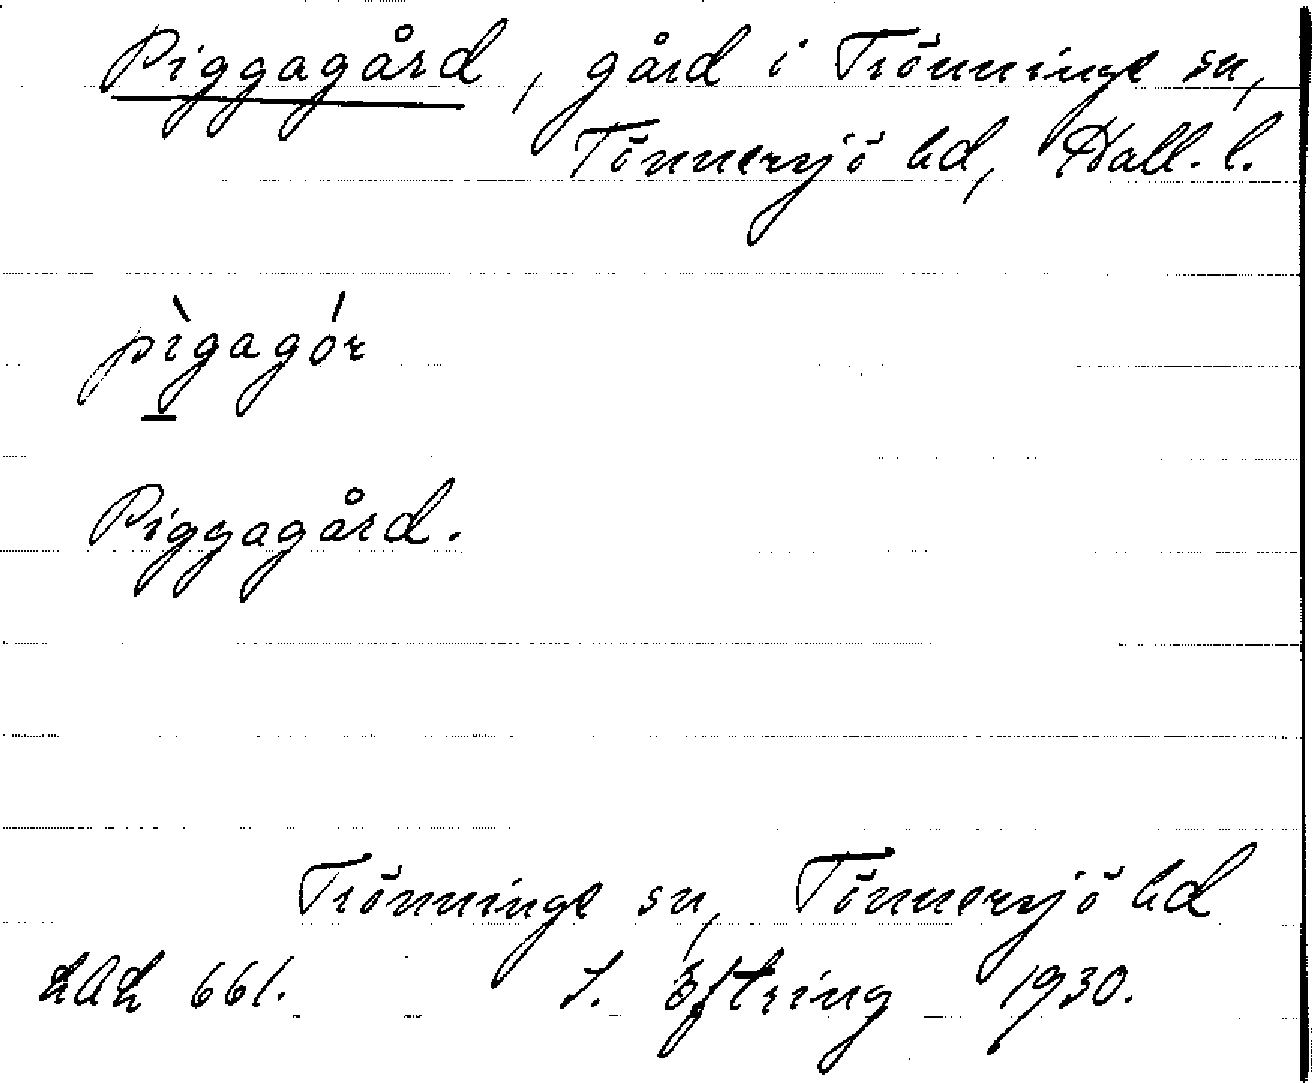 Piggagård, gård i Trönninge sn,
Tönnersjö hd, Hall. l.
pìgagór
Piggagård.
Trönninge sn, Tönnersjö hd
LAL 661. S. Eftring 1930.